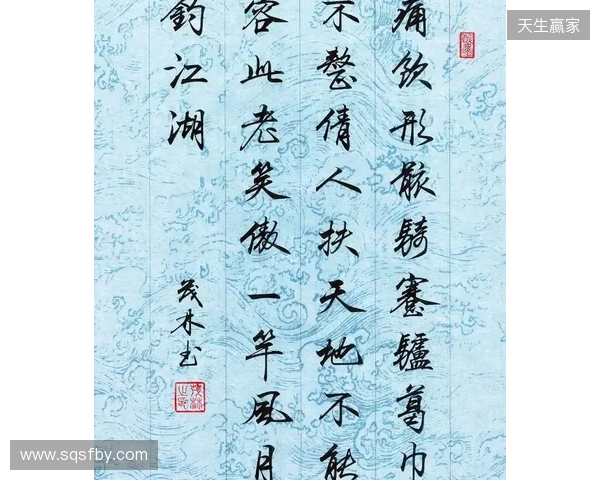 天生赢家
痛飲形骸騎蹇驢葛巾
不整倩人扶天地不能
容此老笑傲一竿風月
釣江湖
茂林书
www.sqsfby.com